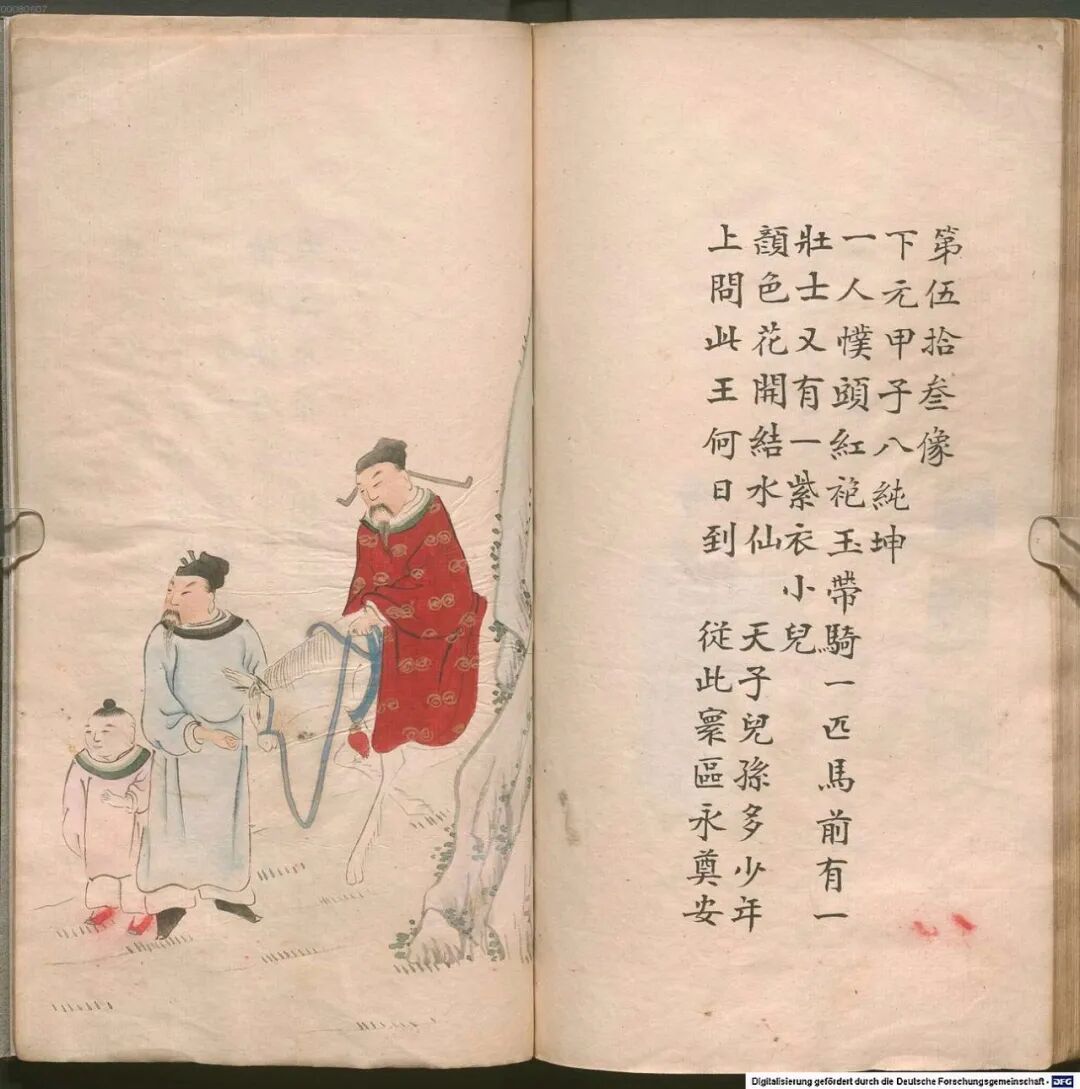 00080607
第伍拾叁像
下元甲子八純坤
一人幞頭紅袍玉帶騎一匹馬前有一
壯士又有一紫衣小兒
顔色花開結水仙 天子兒孫多少年
上問此王何日到 從此寰區永奠安
Digitalisierung gefördert durch die Deutsche Forschungsgemeinschaft - DFG